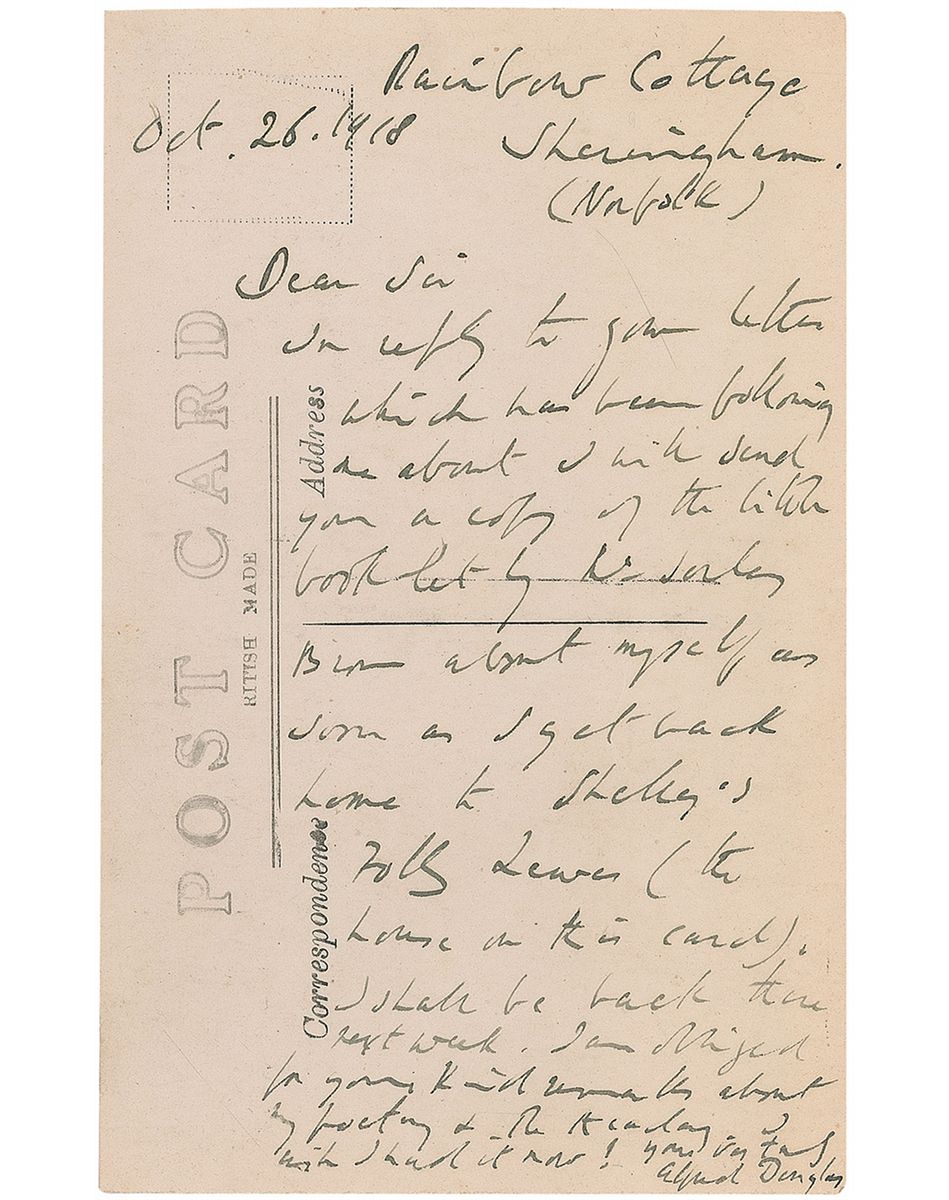 Rainbow Cottage
Oct. 26. 1918
Sheringham.
(Norfolk)
Dear Sir
In reply to your letter
which has been following
me about I will send
you a copy of the little
booklet by Mr Sorley
Brown about myself as
soon as I get back
home to Shelley's
Folly Lewes (the
house on this card).
I shall be back there
next week. I am obliged
for your kind remarks about
my poetry & the Academy I
wish I had it now! yours
Alfred Douglas
POST CARD
RITISH MADE
Address
Correspondence